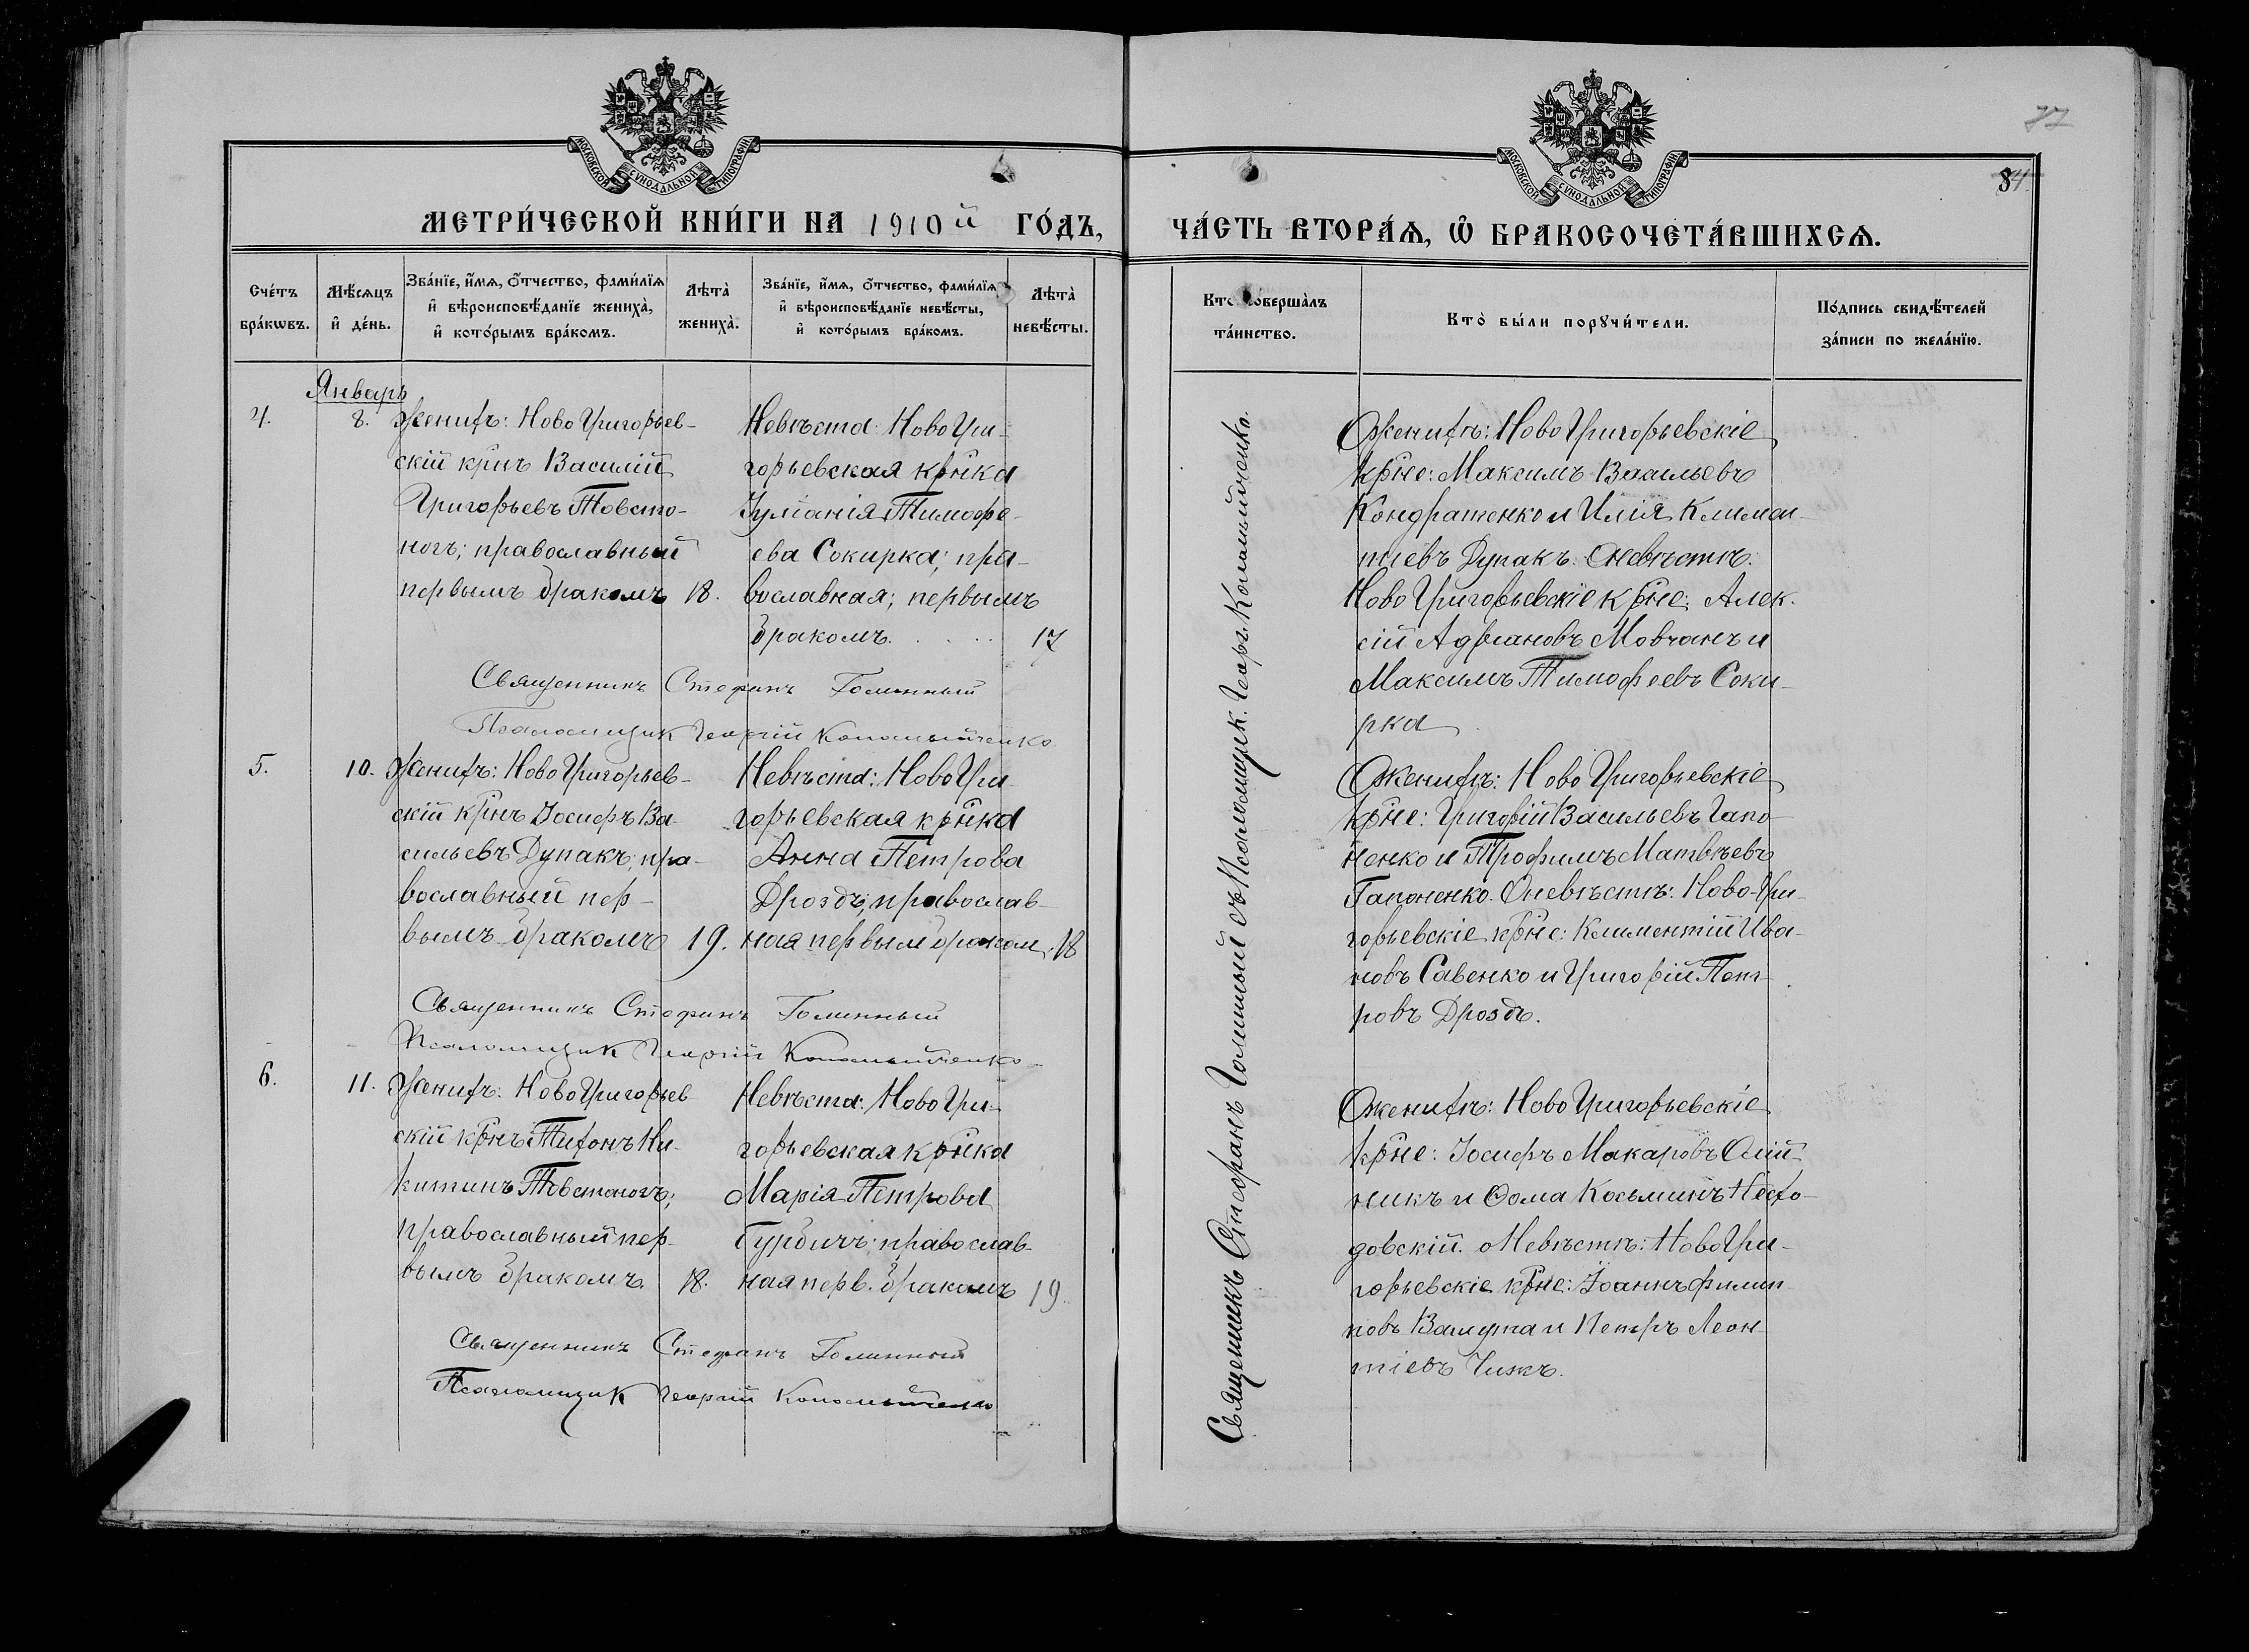 МОСКОВСКОЙ СѴНОДАЛЬНОЙ ТИПОГРАФІИ
МЕТРИ́ЧЕСКОЙ КНИ́ГИ НА 1910й ГО́ДЪ,
Сче́тъ бра́кωвъ.
Мѣ́сяцъ и҆ де́нь.
Зва́нїе, и҆́мѧ, ѻ҆́тчество, фами́лїѧ и҆ вѣроисповѣ́данїе жениха̀, и҆ кото́рымъ бра́комъ.
Лѣта̀ жениха̀.
Зва́нїе, и҆́мѧ, ѻ҆́тчество, фами́лїѧ и҆ вѣроисповѣ́данїе невѣ́сты, и҆ кото́рымъ бра́комъ.
Лѣта̀ невѣ́сты.
Январь
4.
8.
Женихъ: Ново Григорьев-
скій крнъ Василій
Григорьевъ Товсто-
ногъ; православный
первымъ бракомъ 18.
Невѣста: Ново Гри-
горьевская крнка
Іуліанія Тимофе-
ева Сокирка; пра-
вославная; первымъ
бракомъ. 17
Священникъ Стефанъ Голинный
Псаломщик Георгій Коломыйченко
5.
10.
Женихъ: Ново Григорьев-
скій крнъ Іосифъ Ва-
сильевъ Дупакъ; пра-
вославный пер-
вымъ бракомъ 19.
Невѣста: Ново Гри-
горьевская крнка
Анна Петрова
Дроздъ; православ-
ная первым браком. 18
Священникъ Стефанъ Голинный
Псаломщик Георгій Коломыйченко
6.
11.
Женихъ: Ново Григорьев-
скій крнъ Тихонъ Ни-
китинъ Товстоногъ;
православный пер-
вымъ бракомъ. 18.
Невѣста: Ново Гри-
горьевская крнка
Марія Петрова
Гурбичъ; православ-
ная перв. бракомъ 19.
Священникъ Стефанъ Голинный
Псаломщик Георгій Коломыйченко
МОСКОВСКОЙ СѴНОДАЛЬНОЙ ТИПОГРАФІИ
84
ЧА́СТЬ ВТОРА́Ѧ, Ѽ БРАКОСОЧЕТА́ВШИХСѦ.
Кто̀ соверша̀лъ та́инство.
Кто̀ бы́ли порꙋчи́тели.
По́дпись свидѣ́телей за́писи по жела́нїю.
Священникъ Стефанъ Голинный съ Псаломщик. Георг. Коломыйченко.
О женихѣ: Ново Григорьевскіе
крне: Максимъ Васильевъ
Кондратенко и Илія Климен-
тіевъ Дупакъ. О невѣстѣ:
Ново Григорьевскіе крне: Алек-
сій Адріановъ Мовчанъ и
Максимъ Тимофеевъ Соки-
рка.
О женихѣ: Ново Григорьевскіе
крне: Григорій Васильевъ Гапо-
ненко и Трофимъ Матвѣевъ
Гапоненко. О невѣстѣ: Ново-Гри-
горьевскіе крне: Климентій Ива-
новъ Савенко и Григорій Пет-
ровъ Дроздъ.
О женихѣ: Ново Григорьевскіе
крне: Іосифъ Макаровъ Олій-
никъ и Ѳома Косьминъ Несхо-
довскій. О невѣстѣ: Ново Гри-
горьевскіе крне: Іоаннъ Филип-
повъ и Петръ Леон-
тіевъ Чижъ.